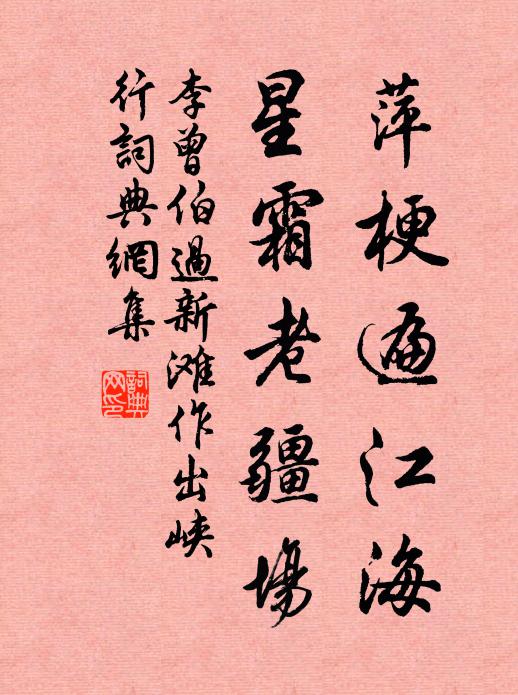 萍梗遍江海
星霜老疆場
李曾伯過新滩作出峽
行詞典網集
詞典
网印